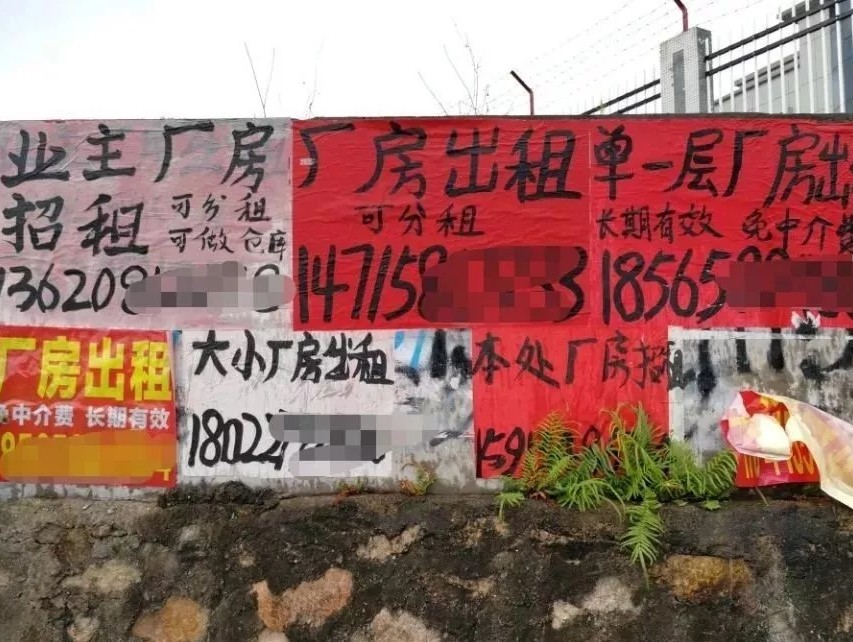 业主厂房
招租 可分租
可做仓库
13620
厂房出租
可分租
14715
单一层厂房出
长期有效 免中介费
18565
厂房出租
免中介费 长期有效
大小厂房出租
18022
本处厂房招租
159